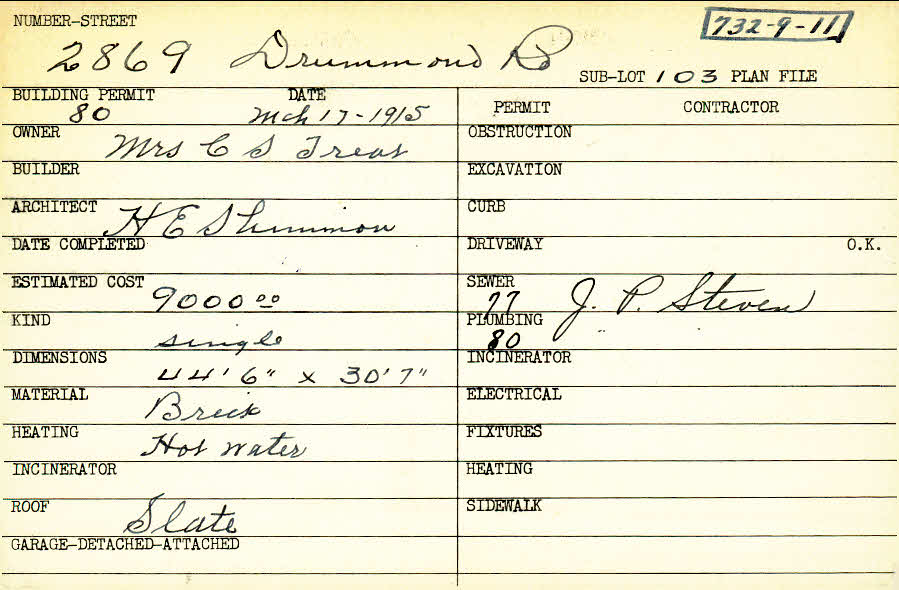 NUMBER-STREET
732-9-11
2869 Drummond Rd
SUB-LOT 103 PLAN FILE
BUILDING PERMIT DATE
80 Mch 17-1915
PERMIT CONTRACTOR
OWNER Mrs C S Treat
OBSTRUCTION
BUILDER
EXCAVATION
ARCHITECT H E Shimmon
CURB
DATE COMPLETED
DRIVEWAY O.K.
ESTIMATED COST 9000 00
SEWER 77 J. P. Steven
KIND single
PLUMBING 80 "
DIMENSIONS 44'6" x 30'7"
INCINERATOR
MATERIAL Brick
ELECTRICAL
HEATING Hot water
FIXTURES
INCINERATOR
HEATING
ROOF Slate
SIDEWALK
GARAGE-DETACHED-ATTACHED